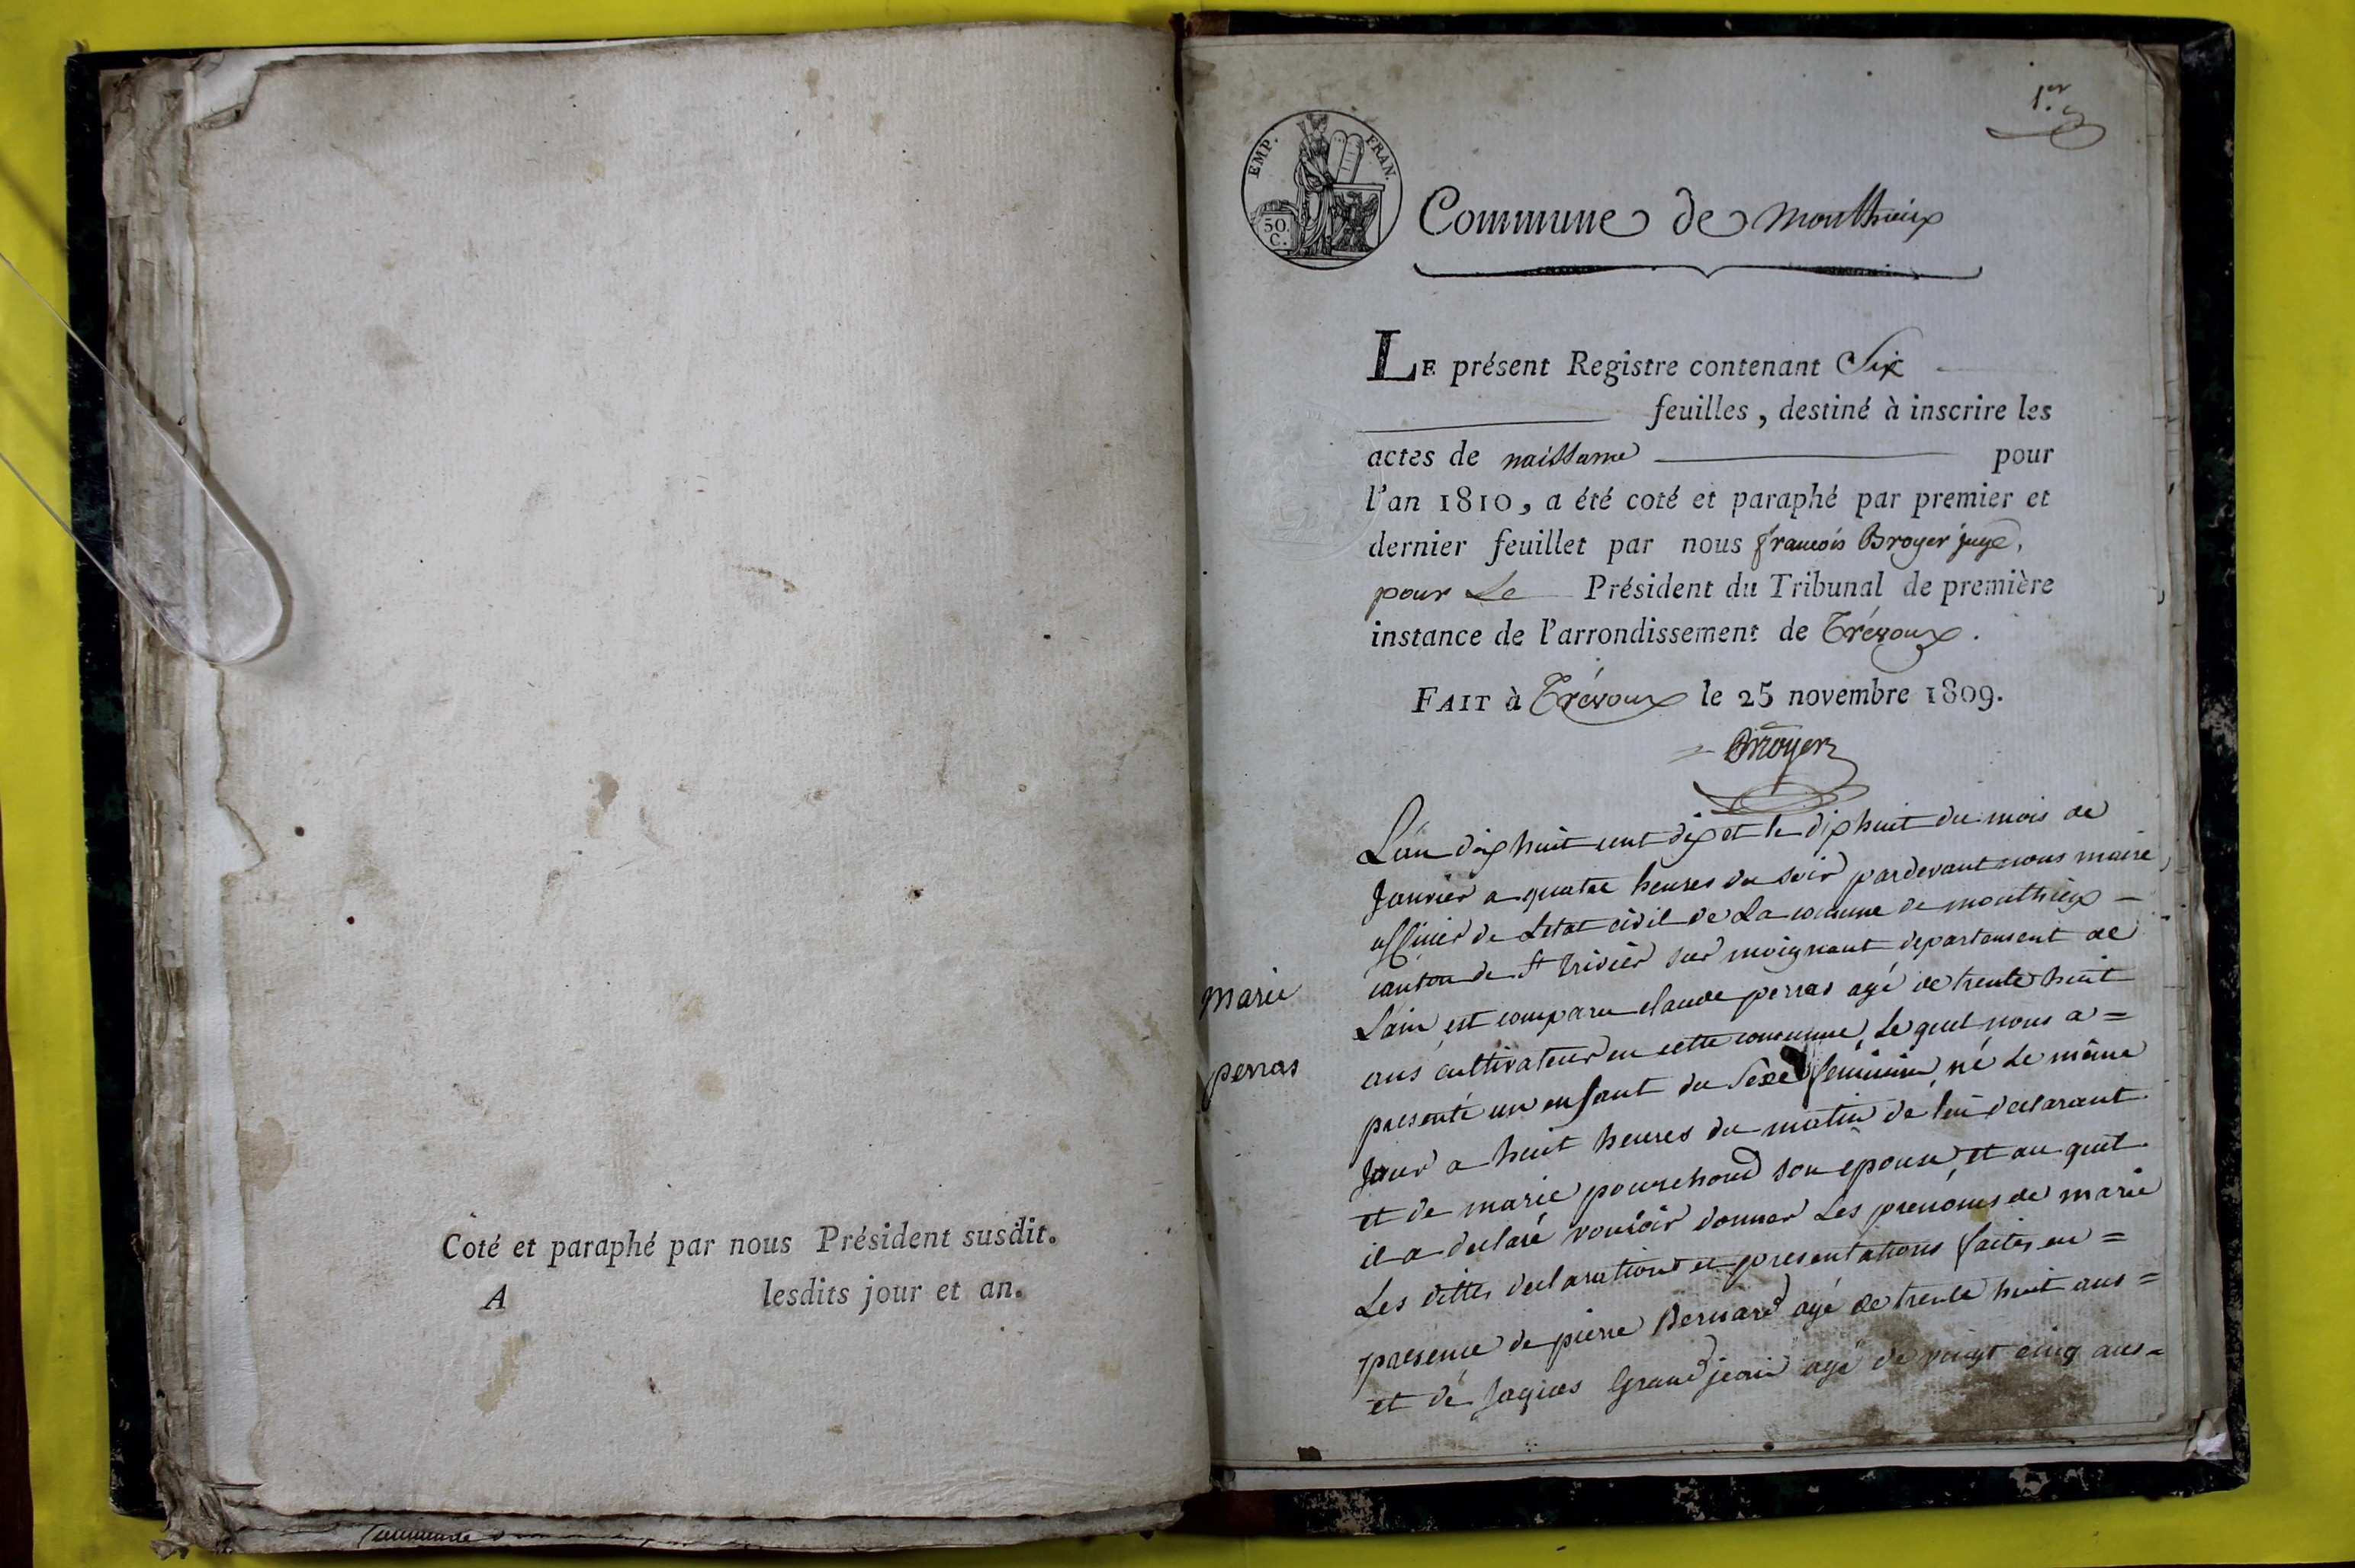 Coté et paraphé par nous Président susdit.
A lesdits jour et an.
1.er
EMP. FRAN.
50. C.
Commune de Monthieux
LE présent Registre contenant Six
feuilles, destiné à inscrire les
actes de naissance pour
l'an 1810, a été coté et paraphé par premier et
dernier feuillet par nous françois Broyer juge,
pour Le Président du Tribunal de première
instance de l'arrondissement de Trévoux.
FAIT à Trévoux le 25 novembre 1809.
Broyer
L'an dix huit cent dix et le dix huit du mois de
Janvier a quatre heures du soir pardevant nous maire,
officier de Letat civil de La comune de monthieux -
canton de St trivier sur moignant departement de
Lain, est comparu claude perras agé de trente huit
ans cultivateur en cette commune, Le quel nous a =
presenté un enfant du Sexe feminin, né Le même
Jour a huit heures du matin de lui declarant
et de marie pourchoud son epouse, et au quel
il a declaré vouloir donner Les prenoms de marie
Les dittes declarations et presentations faites en =
presence de pierre Bernard agé de trente huit ans =
et de Jaques Grandjean agé de vingt cinq ans =
Marie
perras